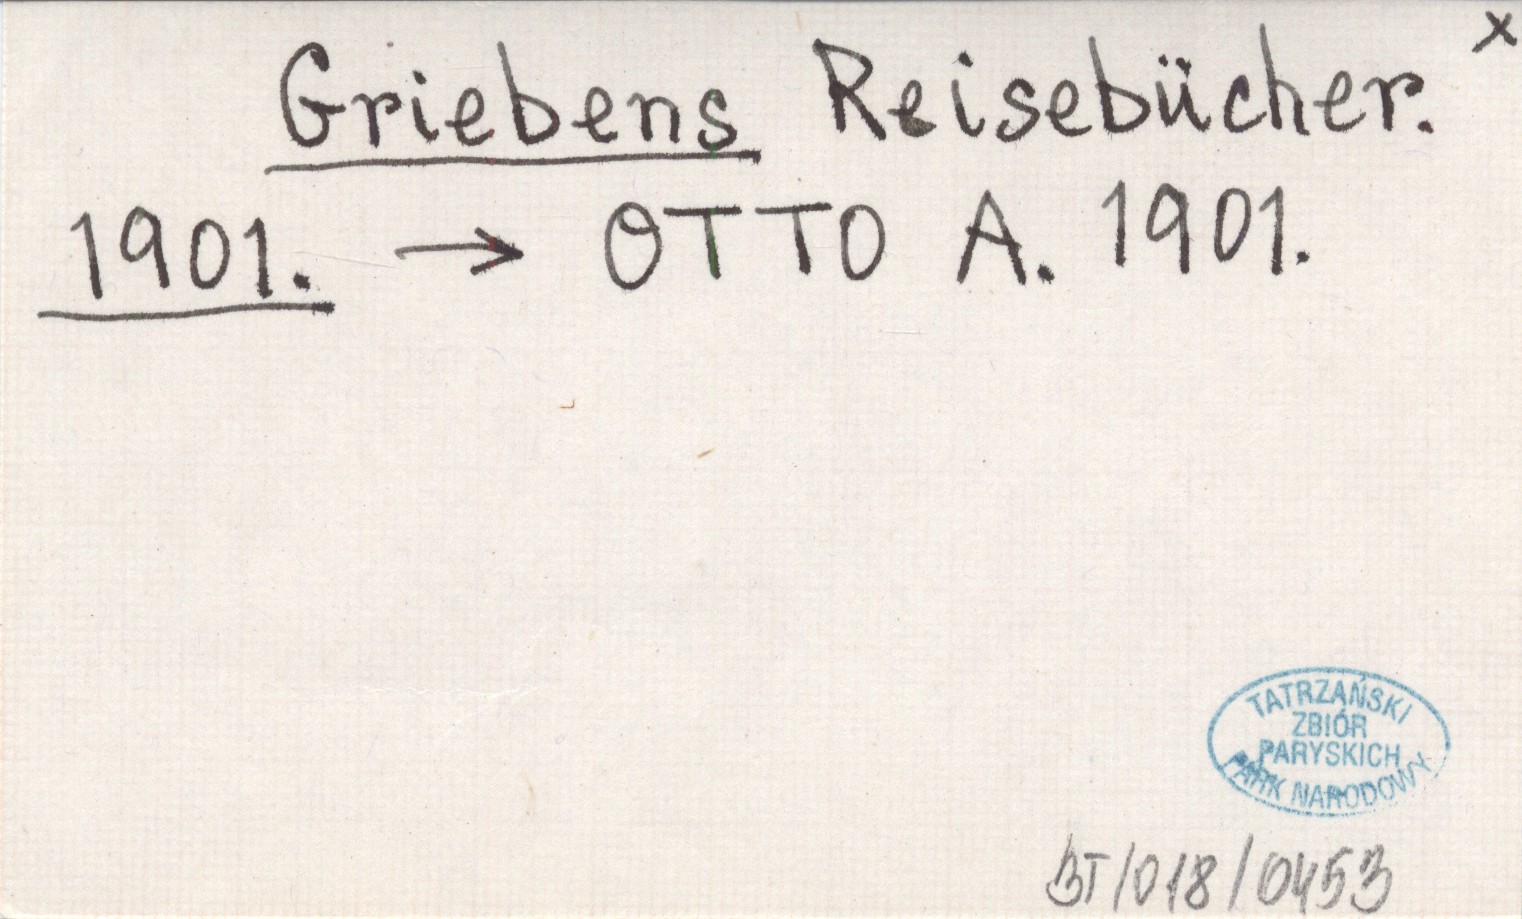 x
Griebens Reisebücher.
1901. → OTTO A. 1901.
TATRZAŃSKI
ZBIÓR
PARYSKICH
PARK NARODOWY
BT/018/0453